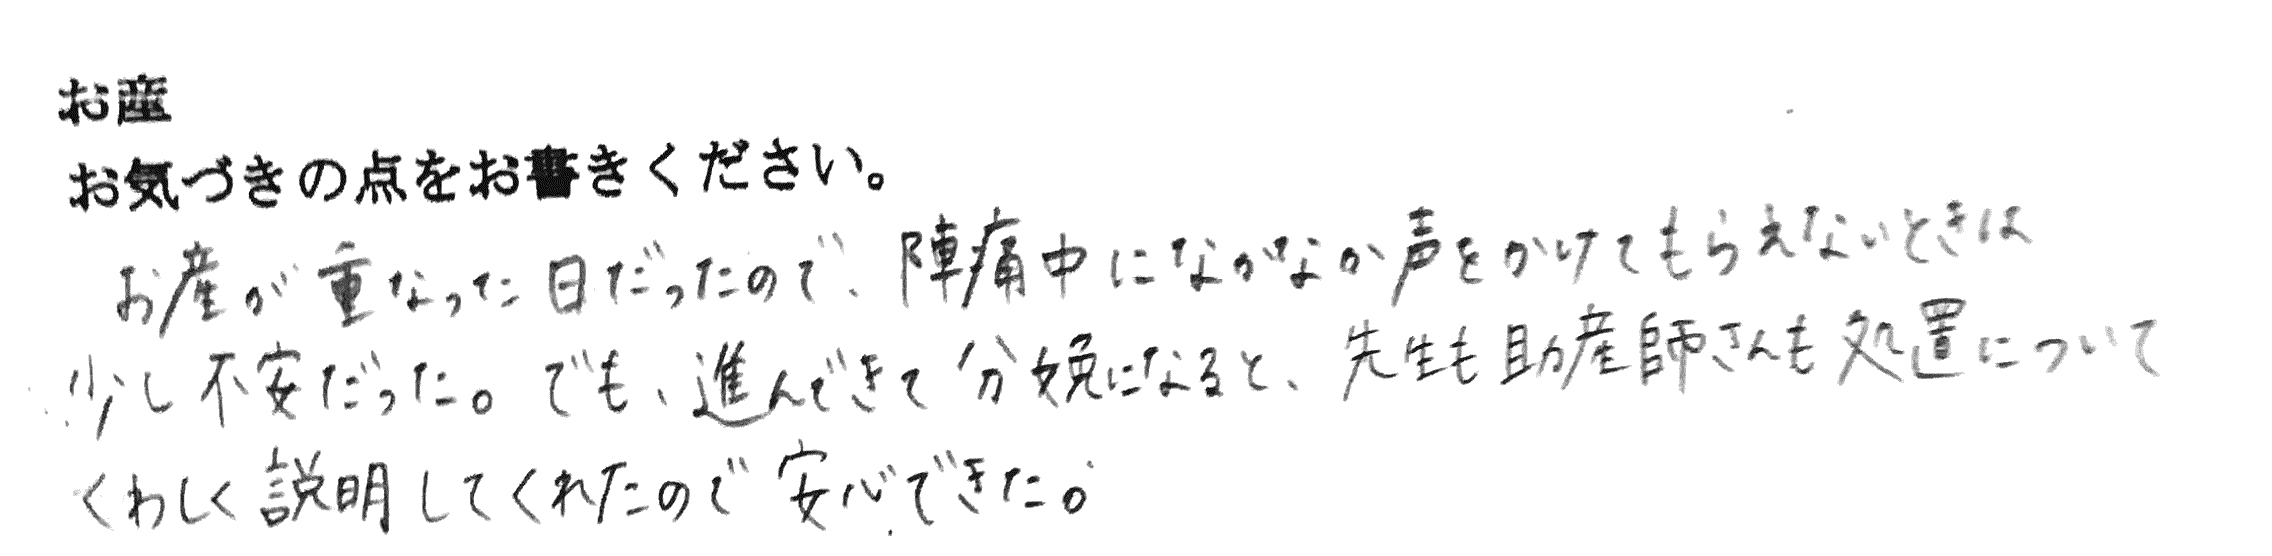 お産
お気づきの点をお書きください。
お産が重なった日だったので、陣痛中になかなか声をかけてもらえないときは
少し不安だった。でも、進んできて分娩になると、先生も助産師さんも処置について
くわしく説明してくれたので安心できた。